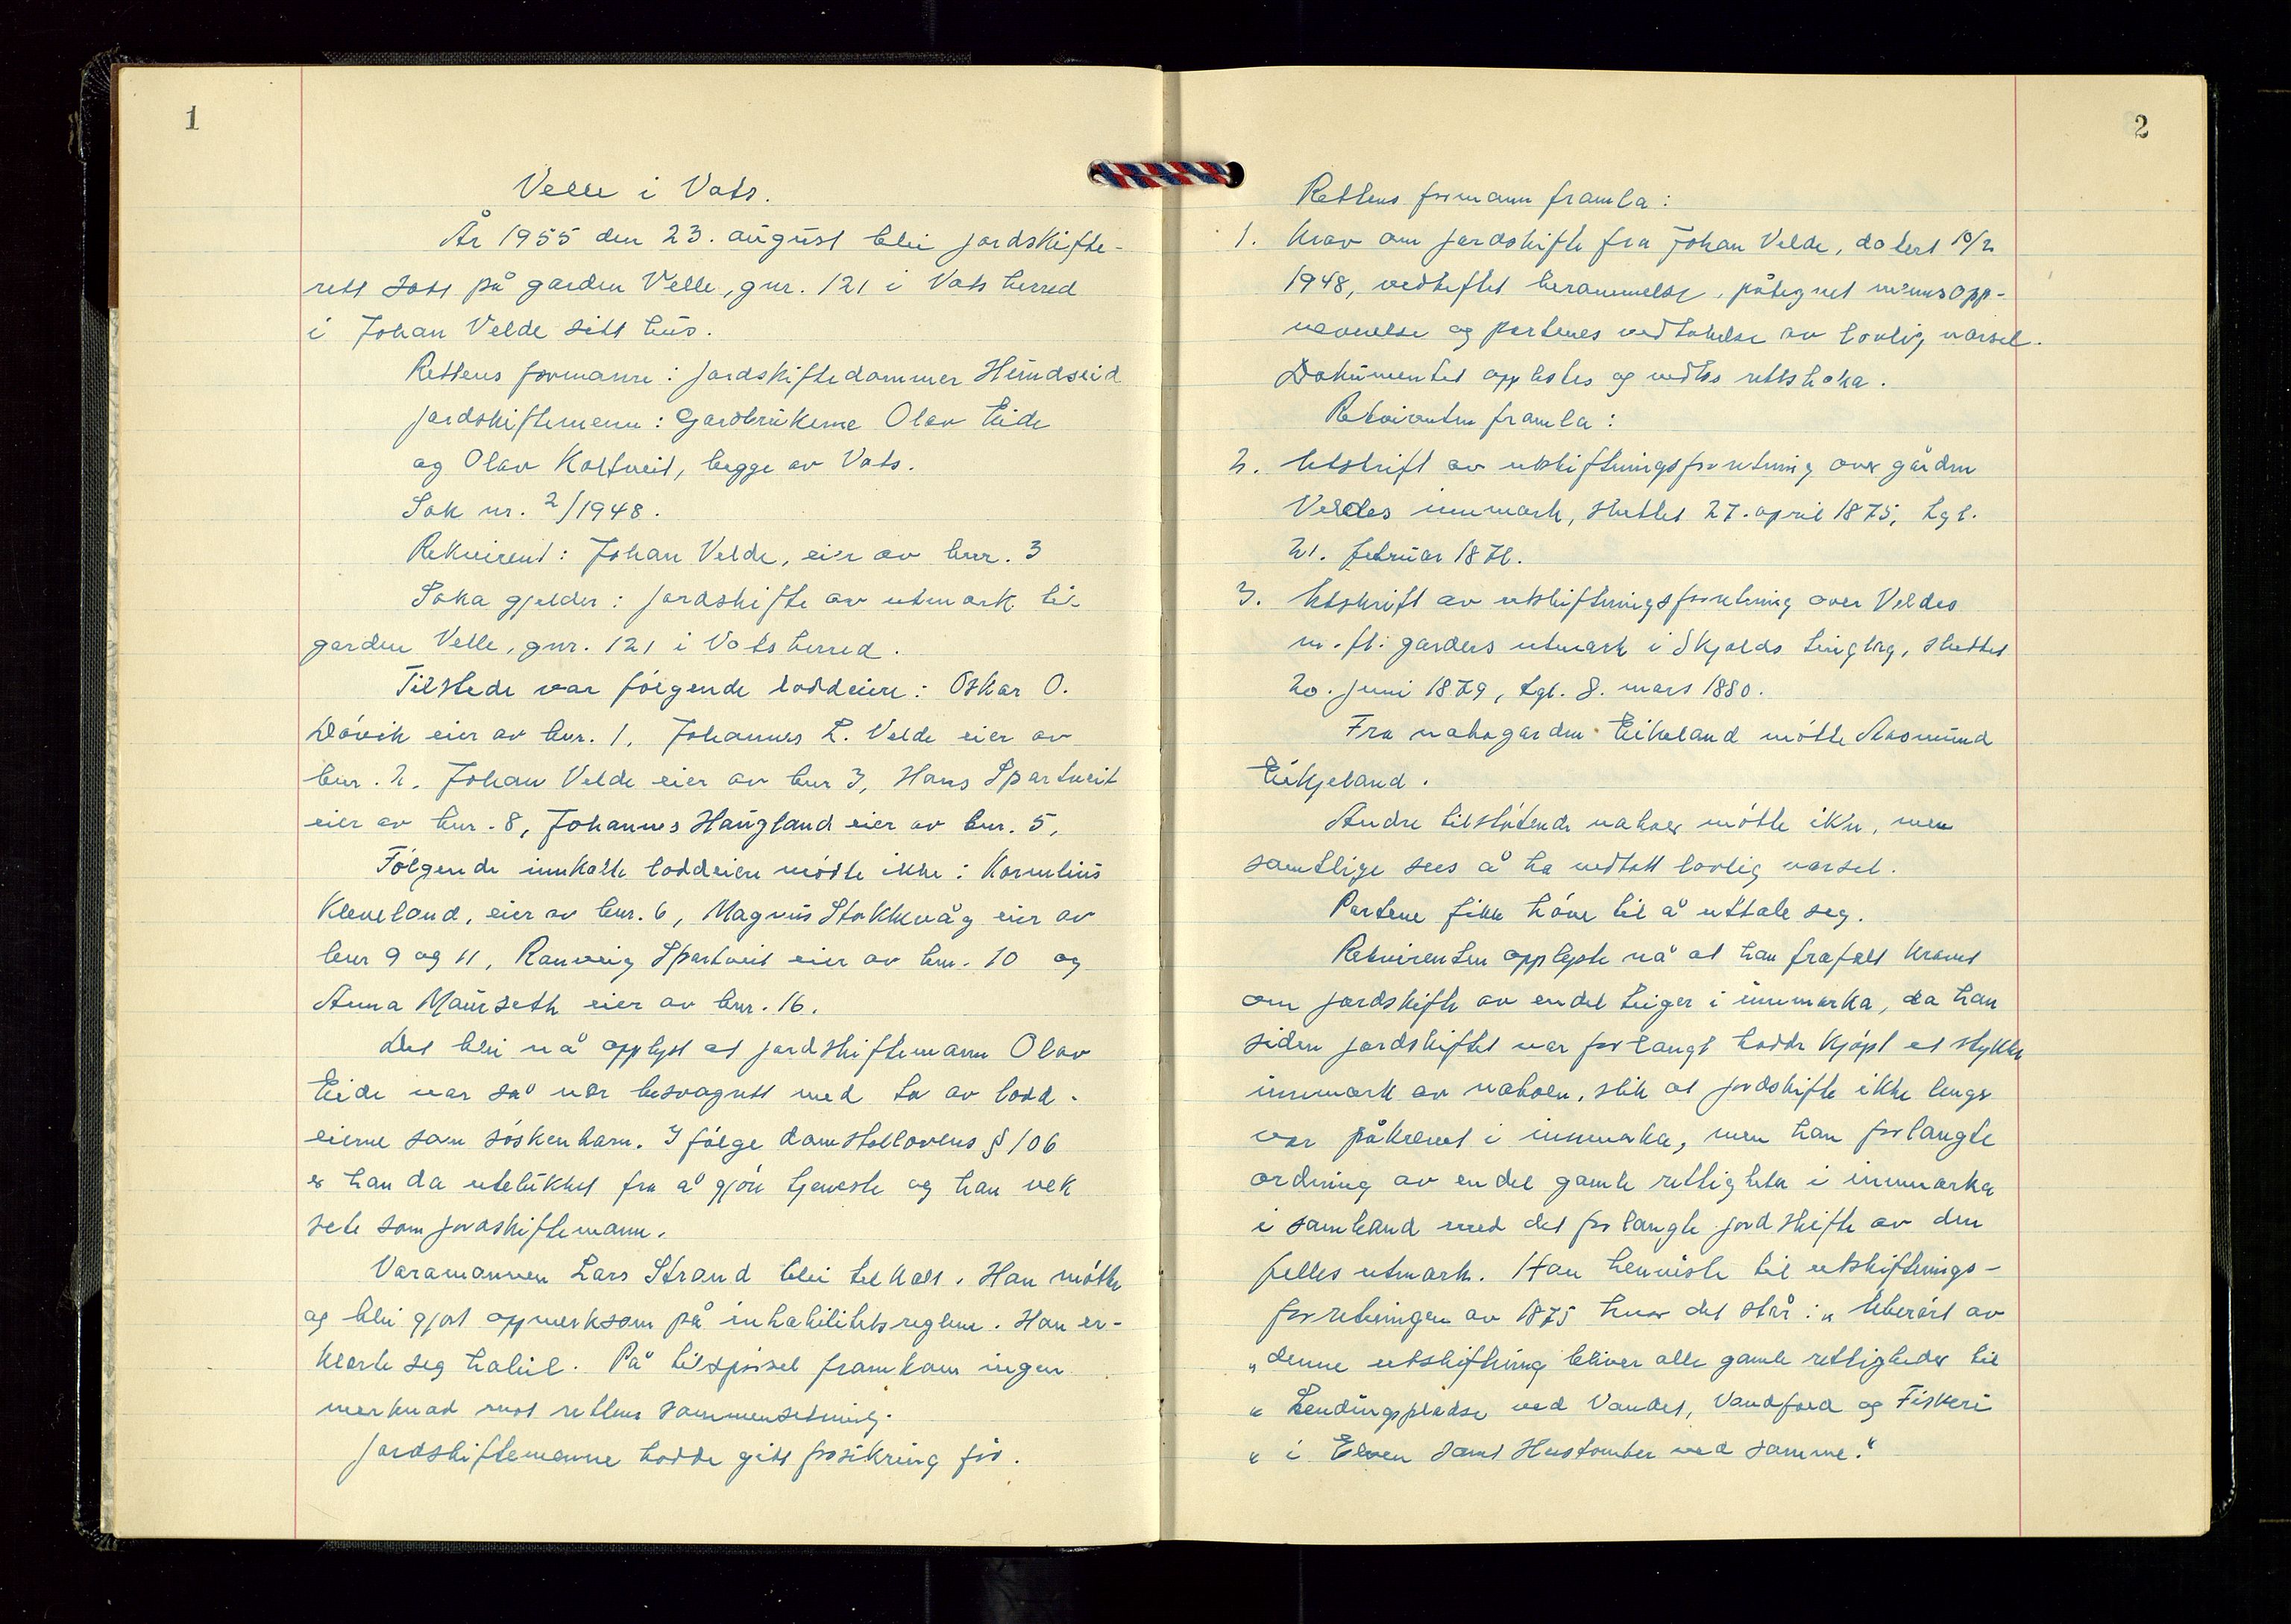 1
Velle i Vats.
År 1955 den 23. august blei jordskifte-
rett satt på garden Velle, gnr. 121 i Vats herred
i Johan Velde sitt hus.
Rettens formann: jordskiftedommer Heimdseid
jordskiftemenn: Gardbrukerne Olav Eide
og Olav Kaltveit, begge av Vats.
Sak nr. 2/1948.
Rekvirent: Johan Velde, eier av bnr. 3
Saka gjelder: jordskifte av utmark til
garden Velle, gnr. 121 i Vats herred.
Tilstede var følgende loddeiere: Oskar O.
Døvik eier av bnr. 1, Johannes L. Velde eier av
bnr. 2, Johan Velde eier av bnr 3, Hans Spartveit
eier av bnr. 8, Johannes Haugland eier av bnr. 5,
Følgende innkalte loddeiere møtte ikke: Kornelius
Kleveland, eier av bnr. 6, Magnus Stakkevåg eier av
bnr 9 og 11, Ranveig Spartveit eier av bnr. 10 og
Anna Maurseth eier av bnr. 16.
Det blei nå opplyst at jordskiftemann Olav
Eide var så nær besvogret med to av lodd-
eierne som søskenbarn. Ifølge domstollovens § 106
er han da utelukket fra å gjøre tjeneste og han vek
sete som jordskiftemann.
Varamannen Lars Strand blei tilkalt. Han møtte
og blei gjort oppmerksom på inhabilitetsreglene. Han er-
klærte seg habil. På tilspørsel framkom ingen
merknad mot rettens sammensetning.
Jordskiftemenne hadde gitt forsikring før.
2
Rettens formann framla:
1. Krav om jordskifte fra Johan Velde, datert 10/2
1948, vedheftet berammelse, påtegnet mannsopp-
nevnelse og partenes vedtakelse av lovlig varsel.
Dokumentet opplestes og vedtas rettsboka.
Rekvirenten framla:
2. Utskrift av utskiftningsforretning over gården
Veldes innmark, sluttet 27. april 1875, tgl.
21. februar 1876.
3. Utskrift av utskiftningsforretning over Veldes
m. fl. garders utmark i Skjolds tinglag, sluttet
20. juni 1879, tgl. 8. mars 1880.
Fra nabogarden Eikeland møtte Aasmund
Eikjeland.
Andre tilstøtende naboer møtte ikke, men
samtlige sees å ha vedtatt lovlig varsel.
Partene fikk høve til å uttale seg.
Rekvirenten opplyste nå at han frafalt kravet
om jordskifte av endel teiger i innmarka, da han
siden jordskiftet var forlangt hadde kjøpt et stykke
innmark av naboen, slik at jordskifte ikke lenger
var påkrevet i innmarka, men han forlangte
ordning av endel gamle rettigheter i innmarka
i samband med det forlangte jordskifte av den
felles utmark. Han henviste til utskiftnings-
forretningen av 1875 hvor det står: „ Uberørt av
„ denne utskiftning bliver alle gamle rettigheder til
„ Lendingspladse ved Vandet, Vandføed og Fiskeri
„ i Elven samt Hustomter ved samme."